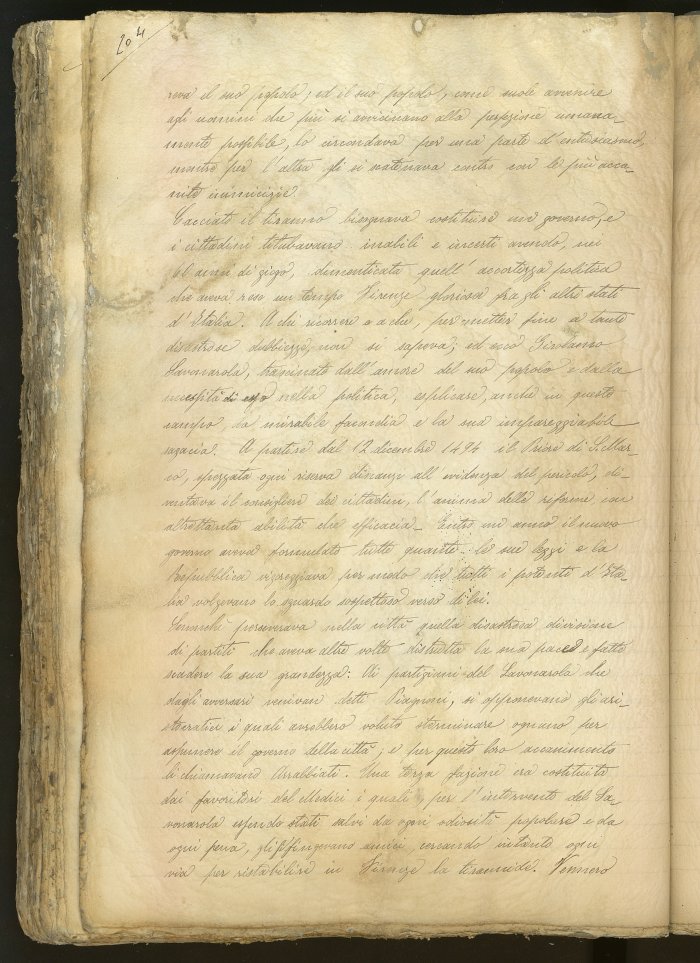 204
reva il suo popolo; ed il suo popolo, come suole avvenire
agli uomini che più si avvicinano alla perfezione umana-
mente possibile, lo circondava per una parte d'entusiasmo,
mentre per l'altra gli si scatenava contro con le più acca-
nite inimicizie.
Cacciato il tiranno bisognava costituire un governo, e
i cittadini titubavano inabili e incerti avendo, nei
60 anni di giogo, dimenticata quell'accortezza politica
che aveva reso un tempo Firenze gloriosa fra gli altri stati
d'Italia. A chi ricorrere e a chi, per metter fine a tante
disastrose dubbiezze, non si sapeva; ed ecco Girolamo
Savonarola, trascinato dall'amore del suo popolo e dalla
necessità di esso nella politica, esplicare, anche in questo
campo, la mirabile facondia e la sua impareggiabile
sagacia. A partire dal 12 dicembre 1494 il Priore di S. Mar-
co, spezzata ogni riserva dinanzi all'evidenza del pericolo, di-
ventava il consigliere dei cittadini, l'anima delle riforme con
altrettanta abilità che efficacia. Entro un anno il nuovo
governo aveva formulato tutte quante le sue leggi e la
Repubblica vigoreggiava per modo che tutti i potenti d'Ita-
lia volgevano lo sguardo sospettoso verso di lei.
Sennonché perseverava nella città quella disastrosa divisione
di partiti che aveva altre volte distrutta la sua pace e fatto
scadere la sua grandezza: Ai partigiani del Savonarola che
dagli avversari venivan detti Piagnoni, si opponevano gli ari-
stocratici i quali avrebbero voluto sterminare ognuno per
assumere il governo della città; e per questo loro accanimento
li chiamavano Arrabbiati. Una terza fazione era costituita
dai favoritori dei Medici i quali, per l'intervento del Sa-
vonarola essendo stati salvi da ogni odiosità popolare e da
ogni pena, gli si fingevano amici, cercando intanto ogni
via per ristabilire in Firenze la tirannide. Vennero